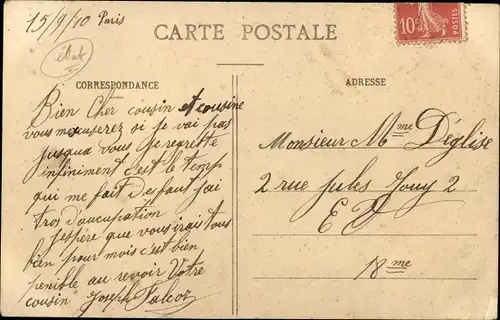 15/9/10 Paris
CARTE POSTALE
10c POSTES
CORRESPONDANCE
ADRESSE
Bien Cher cousin et cousine
vous mexuserez si je vai pas
jusqua vous Je regrette
infiniment c'est le temp
qui me fait Desfaut j'ai
tros d'aucupation
J'espére que vousirais tous
bien pour mois c'est bien
penible au revoir Votre
cousin Joseph Falcoz
Monsieur Mme Déglise
2 rue jules Jouy 2
EV
18me